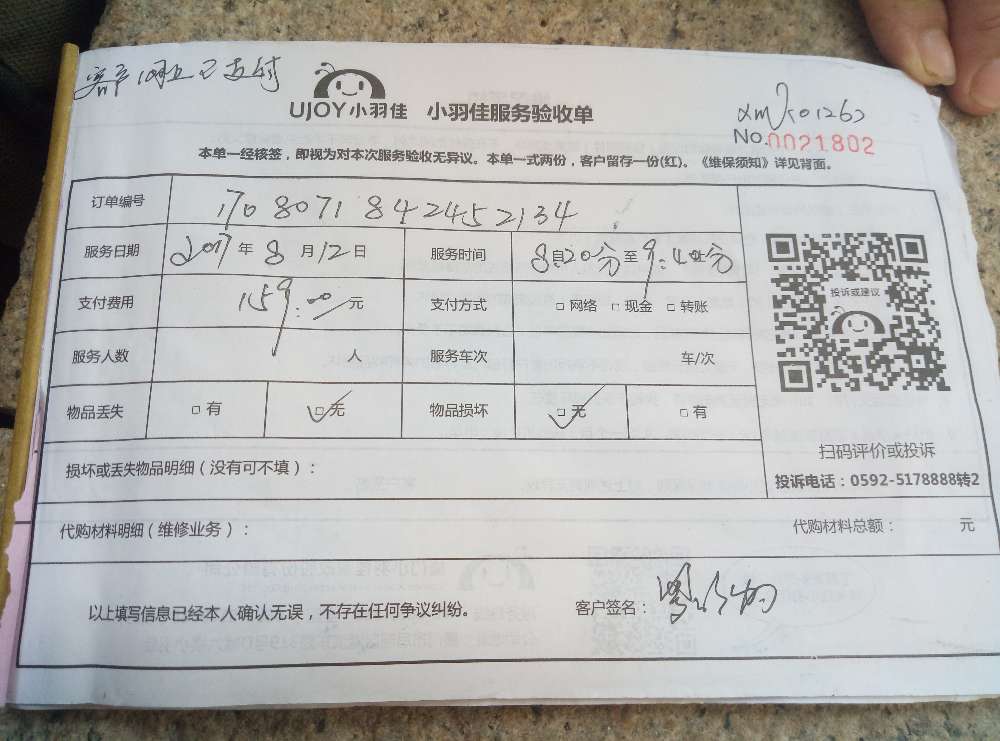 客户网上已支付
UJOY小羽佳 小羽佳服务验收单
No.0021802
本单一经核签，即视为对本次服务验收无异议。本单一式两份，客户留存一份(红)。《维保须知》详见背面。
订单编号 170807184242452134
服务日期 2017年8月12日 服务时间 8:20分至9:40分
支付费用 159.00元 支付方式 □网络 □现金 □转账
投诉或建议
服务人数 人 服务车次 车/次
物品丢失 □有 □无 物品损坏 □无 □有
扫码评价或投诉
损坏或丢失物品明细（没有可不填）：
投诉电话：0592-5178888转2
代购材料明细（维修业务）： 代购材料总额： 元
以上填写信息已经本人确认无误，不存在任何争议纠纷。 客户签名：